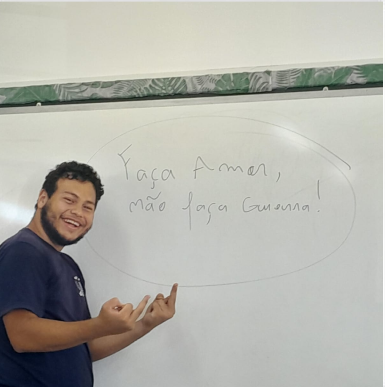 Faça Amor,
não faça Guerra!